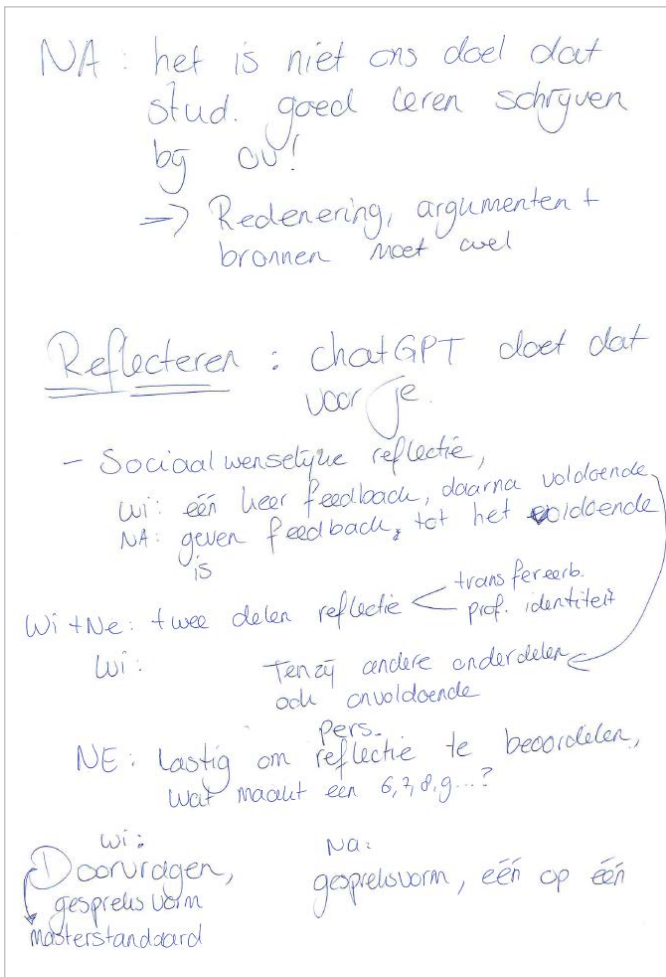 NA: het is niet ons doel dat
stud. goed leren schrijven
bij OV!
=> Redenering, argumenten +
bronnen moet wel
Reflecteren : chatGPT doet dat
voor je.
- Sociaalwenselijke reflectie,
Wi: één keer feedback, daarna voldoende
NA: geven feedback, tot het voldoende
is
Wi + Ne: twee delen reflectie < transfereerb.
prof. identiteit
Wi: Tenzij andere onderdelen
ook onvoldoende
pers.
NE: Lastig om reflectie te beoordelen,
wat maakt een 6,7,8,9...?
Wi: Na:
Doorvragen, gespreksvorm, één op één
gespreksvorm
masterstandaard